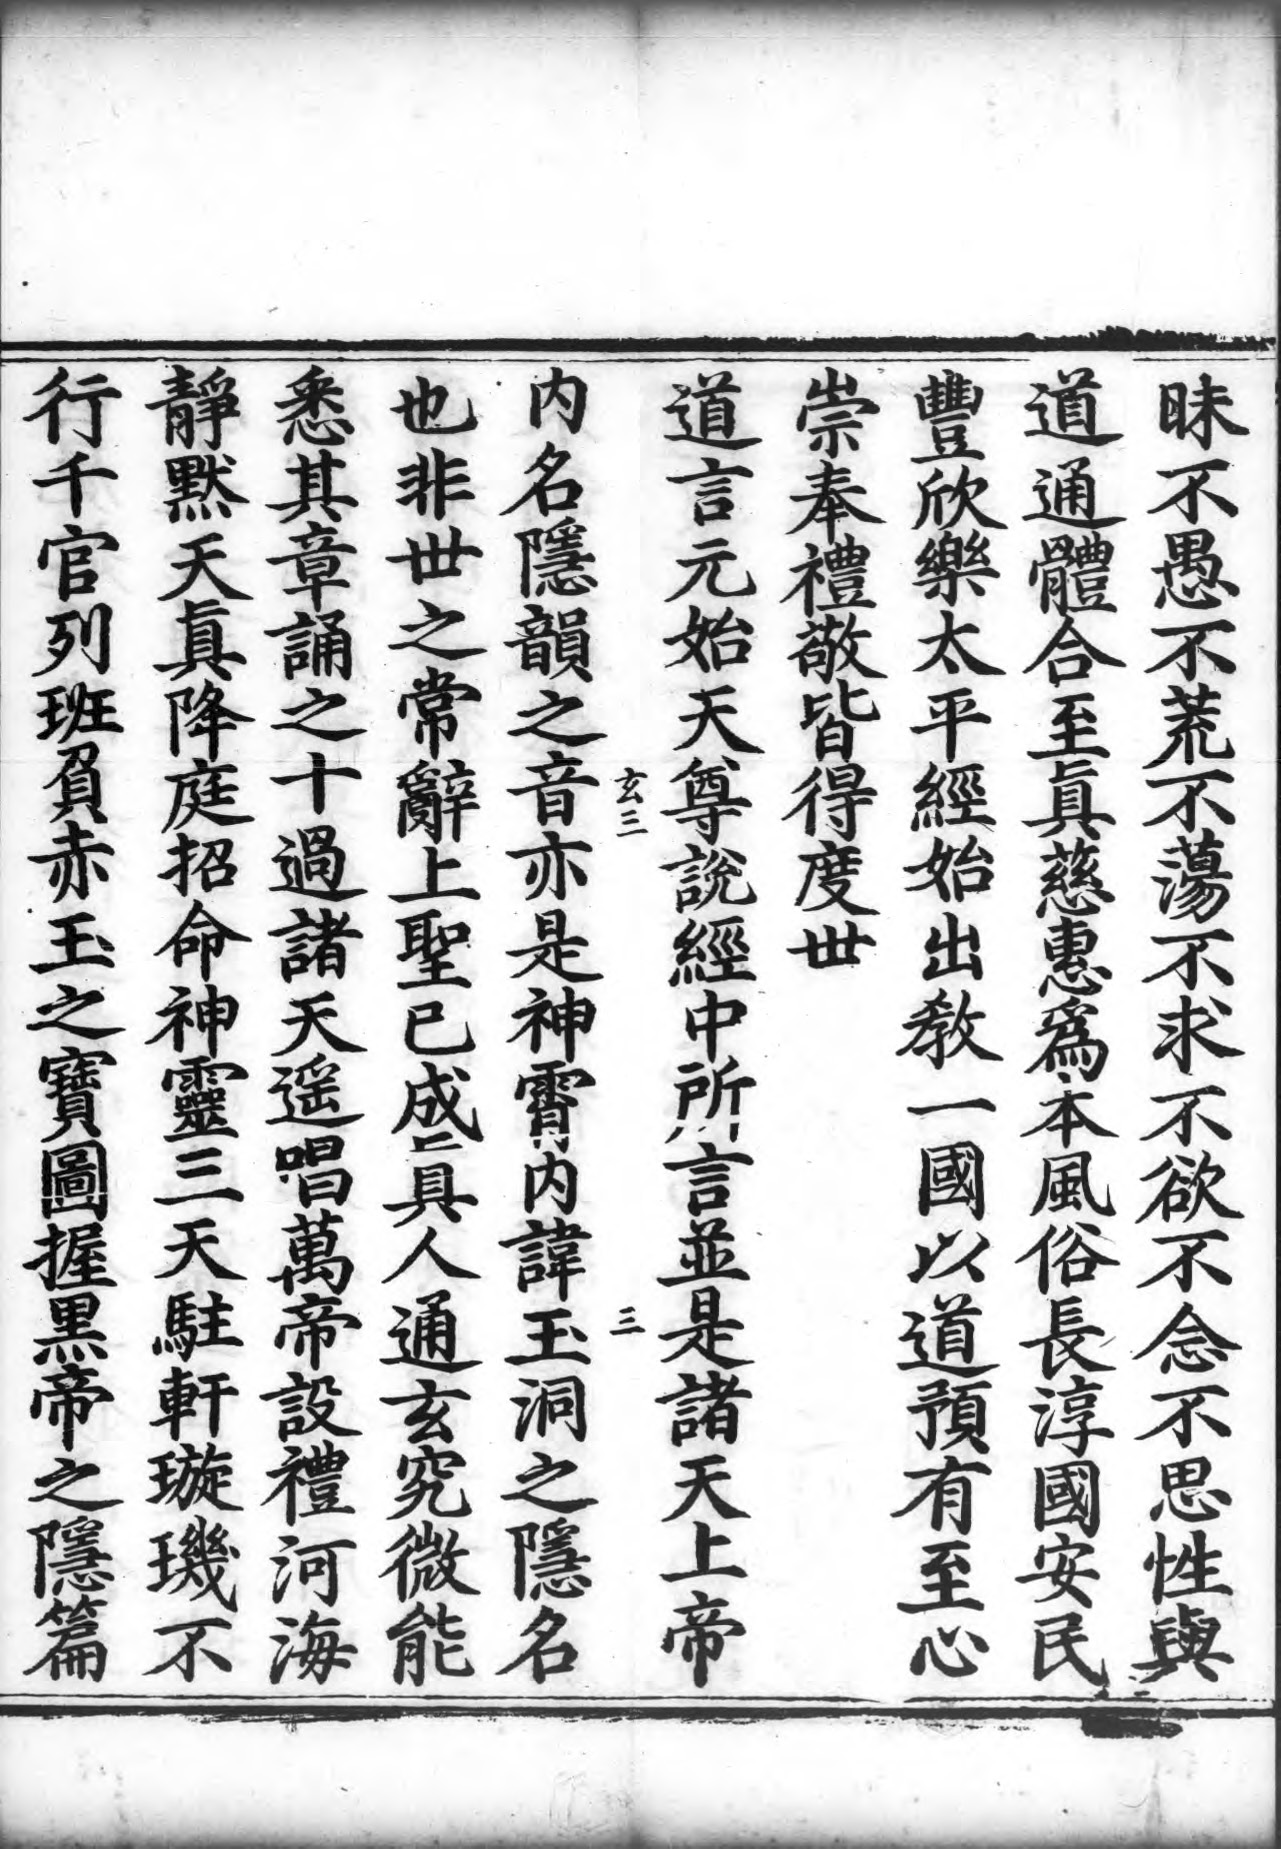 昧不愚不荒不蕩不求不欲不念不思性與
道通體合至真慈惠爲本風俗長淳國安民
豐欣樂太平經始出教一國以道預有至心
崇奉禮敬皆得度世
道言元始天尊說經中所言並是諸天上帝
玄三 三
内名隱韻之音亦是神霄内諱玉洞之隱名
也非世之常辭上聖已成真人通玄究微能
悉其章誦之十過諸天遥唱萬帝設禮河海
靜默天真降庭招命神靈三天駐軒璇璣不
行千官列班負赤玉之寶圖握黒帝之隱篇